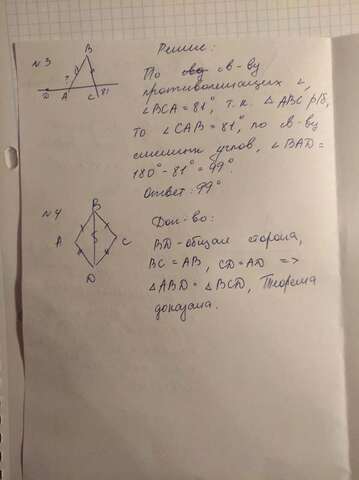 №3
B
?
D
A
C
81
Решие:
По св-ву
противолежащих ∠,
∠BCA = 81°, т.к. △ABC р/б,
то ∠CAB = 81°, по св-ву
смежных углов, ∠BAD =
180° - 81° = 99°.
Ответ: 99°
№4
B
A
C
D
Док-во:
BD - общая сторона,
BC = AB, CD = AD =>
△ABD = △BCD, Теорема
доказана.